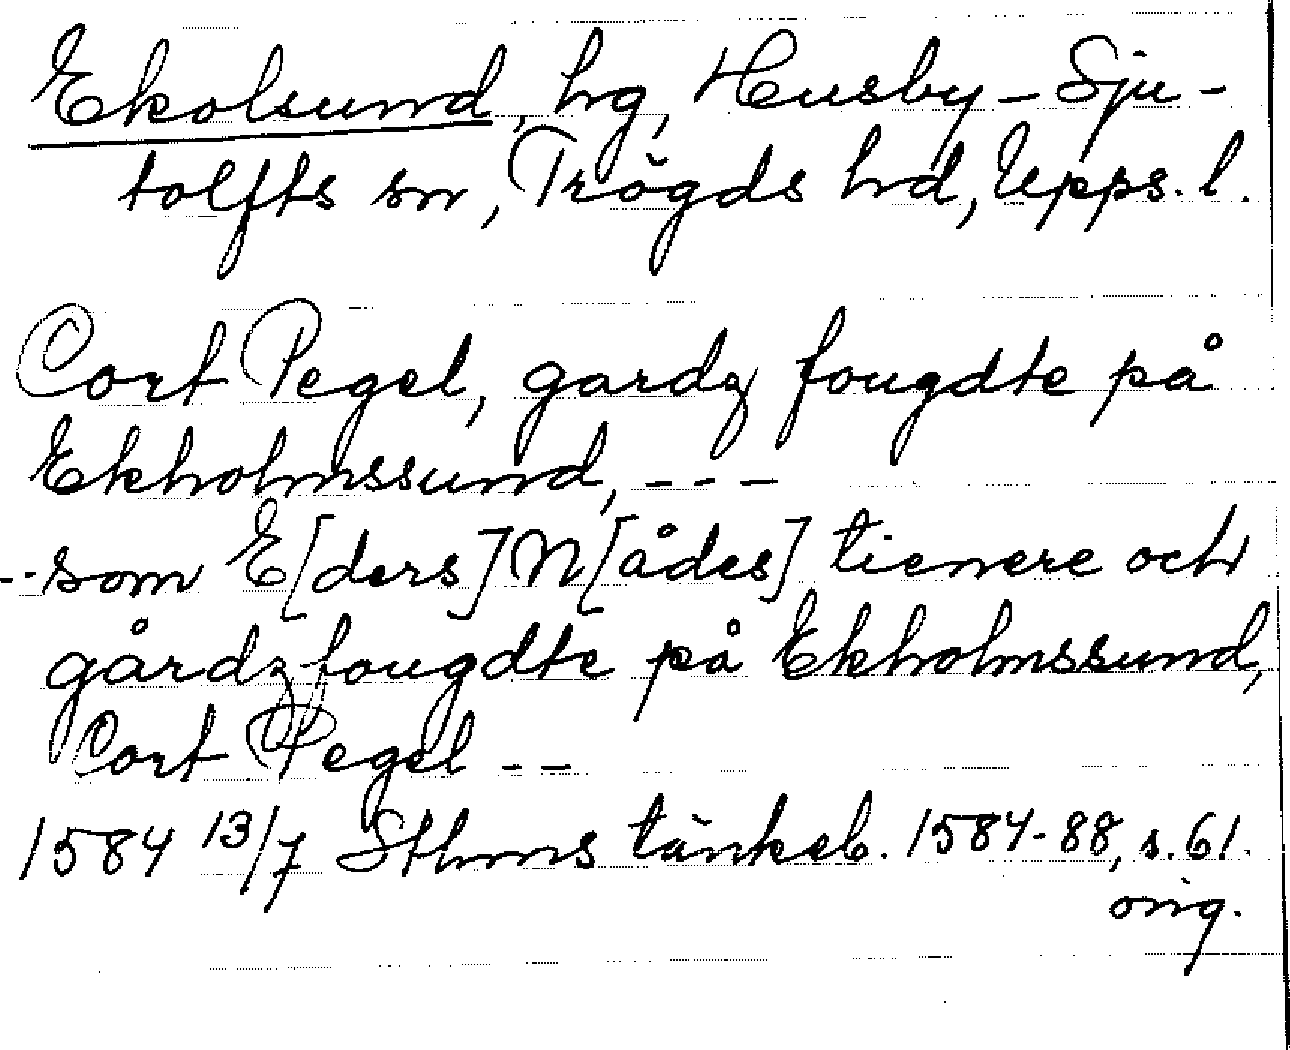 Ekolsund, hg, Husby-Sju-
tolfts sn, Trögds hd, Upps. l.
Cort Pegel, gardz fougdte på
Ekholmssund, ---
--som E[ders] N[ådes] tienere och
gårdzfougdte på Ekholmssund,
Cort Pegel --
1584 13/7 Sthms tänkeb. 1584-88, s. 61.
orig.